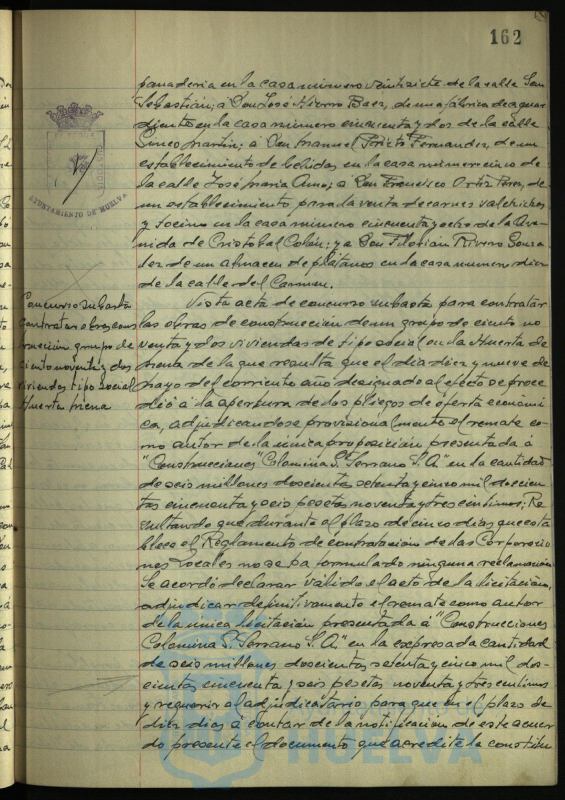 162
panaderia en la casa numero veintisiete de la calle San
Sebastián; a Don José Hierro Baez, de una fábrica de aguar
diente en la casa numero cincuenta y dos de la calle
Cinco Martin; a Don Manuel Prieto Fernandez, de un
establecimiento de bebidas en la casa numero cinco de
la calle José Maria Amo; a Don Francisco Ortiz Perez, de
un establecimiento para la venta de carnes
y tocino en la casa numero cincuenta y ocho de la Ave
nida de Cristobal Colón; y a Don Florian Rivero Gonza
lez de un almacen de plátanos en la casa numero diez
de la calle del Carmen.
Vista acta de concurso subasta para contratar
las obras de construcción de un grupo de ciento no
venta y dos viviendas de tipo social en la Huerta de
Mena de la que resulta que el dia diez y nueve de
mayo del corriente año designado al efecto se proce
dió a la apertura de los pliegos de oferta económi
ca, adjudicandose provisionalmente el remate co
mo autor de la única proposición presentada á
"Construcciones Colomina G. Serrano S.A." en la cantidad
de seis millones doscientos setenta y cinco mil doscien
tas cincuenta y seis pesetas noventa y tres centimos; Re
sultando que durante el plazo de cinco dias que esta
blece el Reglamento de contratación de las Corporacio
nes Locales no se ha formulado ninguna reclamación
Se acordó declarar válido el acto de la licitación,
adjudicar definitivamente el remate como autor
de la única licitación presentada á "Construcciones
Colomina G. Serrano S.A." en la expresada cantidad
de seis millones doscientos setenta y cinco mil dos-
cientas cincuenta y seis pesetas noventa y tres centimos
y requerir al adjudicatario para que en el plazo de
diez dias á contar de la notificación de este acuer
do presente el documento que acredite la constitu
Concurso subasta
contratar obras cons
trucción grupo de
ciento noventa y dos
viviendas tipo social
Huerta Mena
AYUNTAMIENTO DE HUELVA
HUELVA